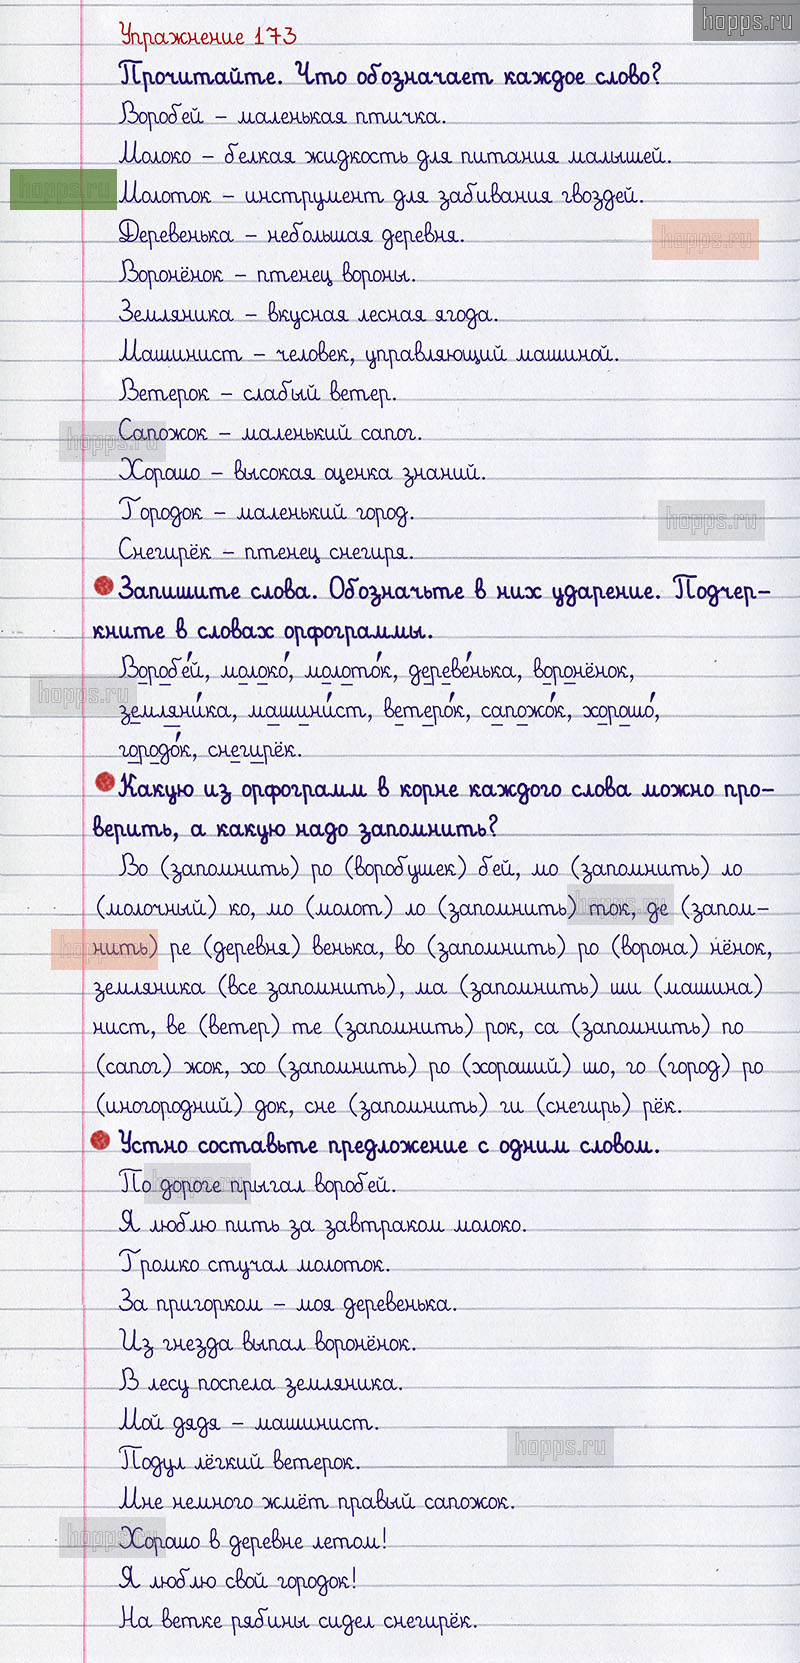 hopps.ru
Упражнение 173
Прочитайте. Что обозначает каждое слово?
Воробей – маленькая птичка.
Молоко – белкая жидкость для питания малышей.
hopps.ru
Молоток – инструмент для забивания гвоздей.
Деревенька – небольшая деревня.
hopps.ru
Воронёнок – птенец вороны.
Земляника – вкусная лесная ягода.
Машинист – человек, управляющий машиной.
Ветерок – слабый ветер.
hopps.ru
Сапожок – маленький сапог.
Хорошо – высокая оценка знаний.
Городок – маленький город.
hopps.ru
Снегирёк – птенец снегиря.
Запишите слова. Обозначьте в них ударение. Подчер-
кните в словах орфограммы.
Воробе́й, молоко́, молото́к, дереве́нька, воронёнок,
hopps.ru
земляни́ка, машини́ст, ветеро́к, сапожо́к, хорошо́,
городо́к, снегирёк.
Какую из орфограмм в корне каждого слова можно про-
верить, а какую надо запомнить?
Во (запомнить) ро (воробушек) бей, мо (запомнить) ло
(молочный) ко, мо (молот) ло (запомнить) ток, де (запом-
hopps.ru
нить) ре (деревня) венька, во (запомнить) ро (ворона) нёнок,
hopps.ru
земляника (все запомнить), ма (запомнить) ши (машина)
нист, ве (ветер) те (запомнить) рок, са (запомнить) по
(сапог) жок, хо (запомнить) ро (хороший) шо, го (город) ро
(иногородний) док, сне (запомнить) ги (снегирь) рёк.
Устно составьте предложение с одним словом.
По дороге прыгал воробей.
hopps.ru
Я люблю пить за завтраком молоко.
Громко стучал молоток.
За пригорком – моя деревенька.
Из гнезда выпал воронёнок.
В лесу поспела земляника.
Мой дядя – машинист.
hopps.ru
Подул лёгкий ветерок.
Мне немного жмёт правый сапожок.
hopps.ru
Хорошо в деревне летом!
Я люблю свой городок!
На ветке рябины сидел снегирёк.